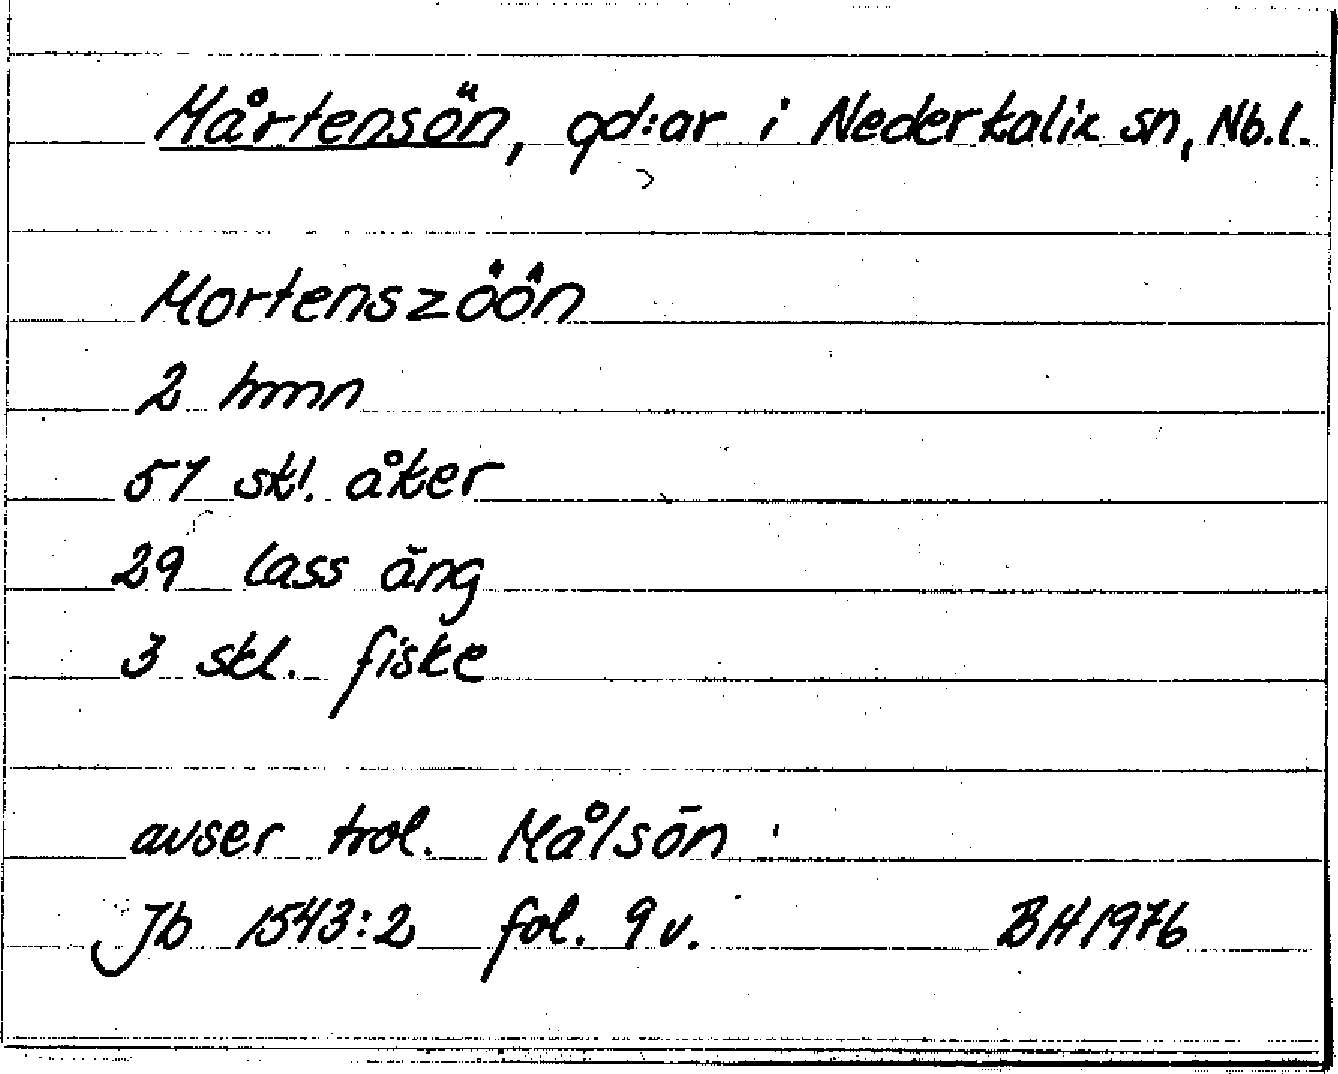 Mårtensön, gd:ar i Nederkalix sn, Nb.l.
Mortenszöön
2 hmn
51 skl. åker
29 lass äng
3 skl. fiske
avser trol. Målsön
Jb 1543:2 fol. 9 v. BH 1976